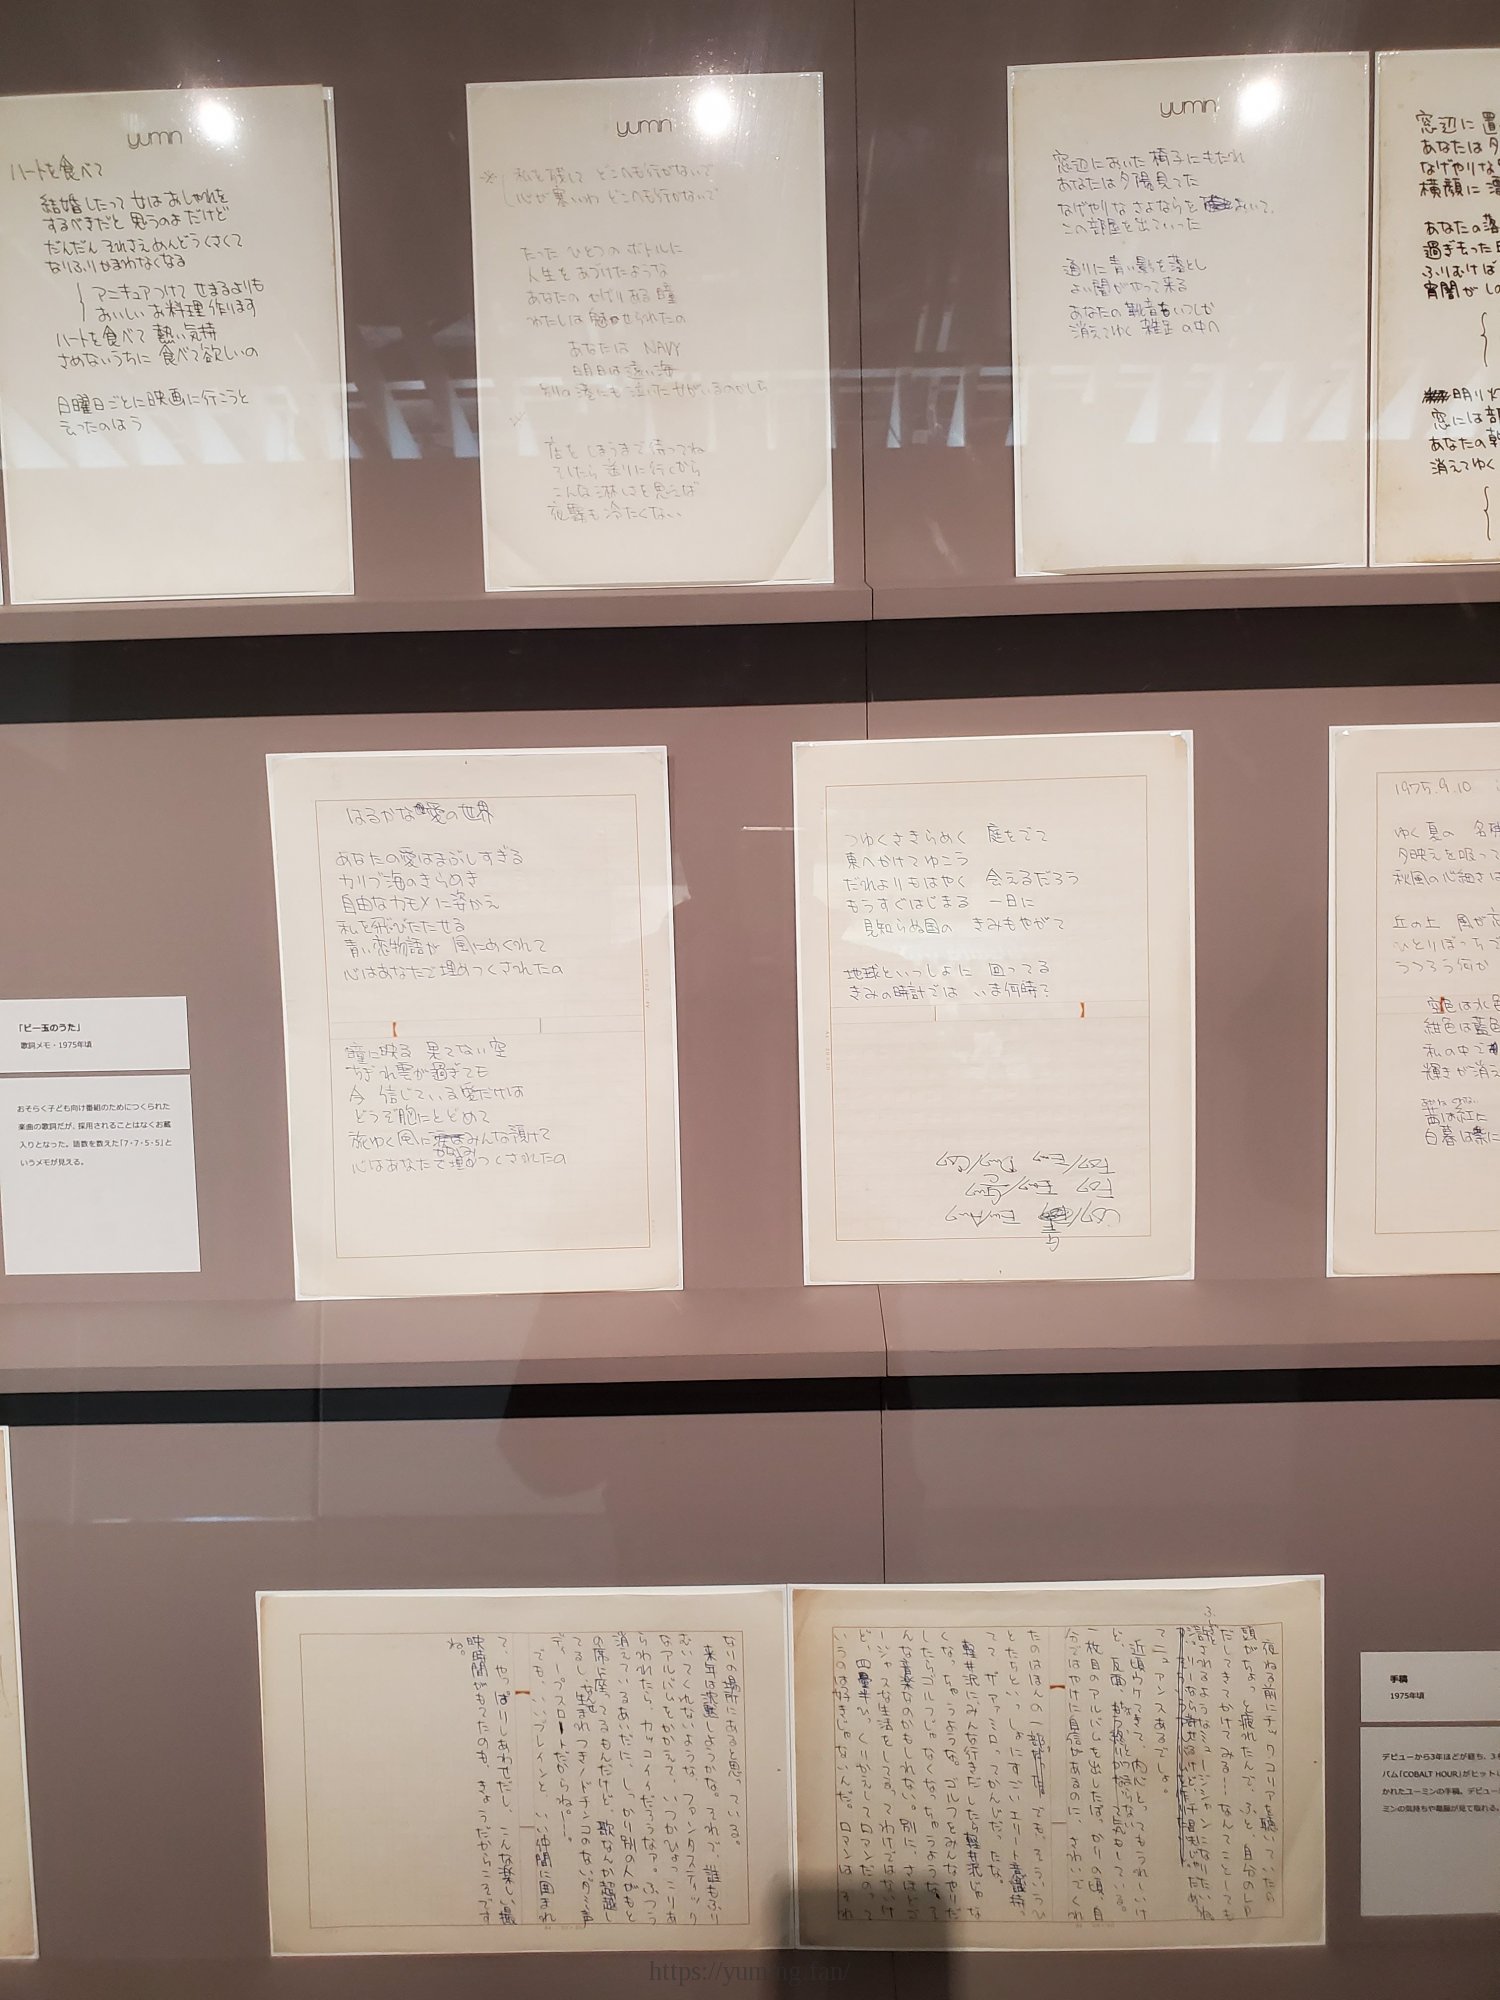 yuming
ハートを食べて
結婚したって 女は おしゃれを
するべきだと 思うのよ だけど
だんだん それさえ めんどうくさくて
なりふりかまわなくなる
マニキュアつけて せまるよりも
おいしい お料理 作ります
ハートを食べて 熱い気持
さめないうちに 食べて欲しいの
日曜日ごとに映画に行こうと
云ったのはう
yuming
私を残して どこへも行かないで
心が寒いわ どこへも行かないで
たった ひとつの ボトルに
人生を あづけたような
あなたの かげりある 瞳
わたしは 魅かせられたの
あなたは NAVY
明日は遠い海
別の港にも 泣いた女がいるのかしら
店を しまうまで 待ってね
そしたら 送りに行くから
こんな 淋しさを思えば
夜霧も 冷たくない
yuming
窓辺においた 椅子にもたれ
あなたは夕陽見てた
なげやりな さよならを おいて
この部屋を出ていった
通りに 青い影を落とし
よい闇がやって来る
あなたの靴音もいつしか
消えてゆく 雑踏の中へ
窓辺に 置
あなたは 夕
なげやりな
横顔に
あなたの 落
過ぎ去った
ふりむけば
宵闇が し
明り 火
窓には 部
あなたの 靴
消えてゆく
「ビー玉のうた」
歌詞メモ・1975年頃
おそらく子ども向け番組のためにつくられた
楽曲の歌詞だが、採用されることはなくお蔵
入りとなった。語数を数えた「7・7・5・5」と
いうメモが見える。
はるかな愛の世界
あなたの愛はまぶしすぎる
カリブ海のきらめき
自由なカモメに姿かえ
私を飛びたたせる
青い恋物語が 風にめくれて
心はあなたで埋めつくされたの
瞳に映る 果てない空
ちぎれ雲が過ぎても
今 信じている愛だけは
どうぞ胸にとどめて
旅ゆく風に涙はみんな預けて
かなしみ
心はあなたで埋めつくされたの
つゆくさきらめく 庭をでて
東へかけてゆこう
だれよりもはやく 会えるだろう
もうすぐはじまる 一日に
見知らぬ国の きみもやがて
地球といっしょに 回ってる
きみの時計では いま何時?
1975.9.10
ゆく夏の 名残
夕映えを吸って
秋風の心細さは
丘の上 風が
ひとりぼっちで
うつろう何か
空色は水色
紺色は藍色
私の中で
輝きが消え
茜は紅に
白暮は
夜ねる前にチックコリアを聴いていたの
頭がちょっと疲れたんで、ふと、自分のLP
だしてきてかけてみる…なんてことしても
許されるようなミュージシャンになりたいね。
てニュアンスあるでしょ。
近頃ウケてきて、内心とってもうれしいけ
一枚目のアルバムを出したばっかりの頃、自
分ではやけに自信があるのに、さわいでくれ
たのはほんの一部だった。でも、そういうひ
とたちといっしょにすごいエリート意識持っ
てて ザ・ファミリーってかんじだったな。
軽井沢にみんな行きだしたら軽井沢じゃな
くなっちゃうような。ゴルフをみんなやりだ
したらゴルフじゃなくなっちゃうような。そ
んな音楽なのかもしれない。別に、さほどゴ
ージャスな生活をしてる、ってわけではないけ
いうのは好きじゃないんだ。ロマンは それ
なりの場所にあると思っている。
来年は沈黙しようかな。それで、誰もふり
むいてくれないような、ファンタスティック
なアルバムをかかえて、いつかひょっこりあ
らわれたら、カッコイイだろうなァ。ふつう
消えているあいだに、しっかり別の人がもと
の席に座ってるもんだけど、歌なんか超越し
てるし、なんせ生まれつきノドチンコのないダミ声
ディープスロートだからね…。
でも、いいブレインと、いい仲間に囲まれ
て、やっぱりしあわせだし、こんな楽しい撮
映時間がもてたのも、きょうだからこそです
ね。
手稿
1975年頃
デビューから3年ほどが経ち、3
バム「COBALT HOUR」がヒット
かれたユーミンの手稿。デビュー
ミンの気持ちや葛藤が見て取れる。
https://yuming.fan/